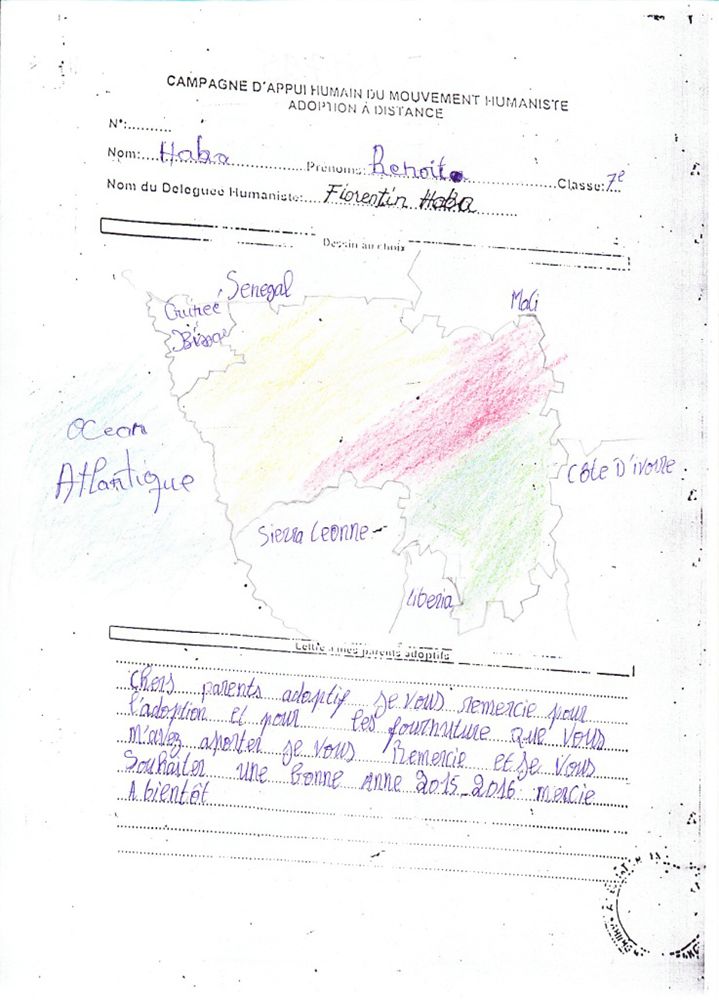 CAMPAGNE D'APPUI HUMAIN DU MOUVEMENT HUMANISTE
ADOPTION À DISTANCE
N°:..........
Nom:...Haba..............Prénoms:.Benoit..................Classe:7e
Nom du Deleguée Humaniste:....Florentin Haba..........
Dessin au choix
Senegal
Mali
Guineé
Ocean
Atlantique
Côte D'ivoire
Sierra Leonne
Liberia
Lettre à mes parents adoptifs
chers parents adoptif je vous remercie pour
l'adoption et pour les fourniture que vous
m'avez aporter je vous Remercie et je vous
Souhaiter une bonne Anne 2015-2016 mercie
A bientôt